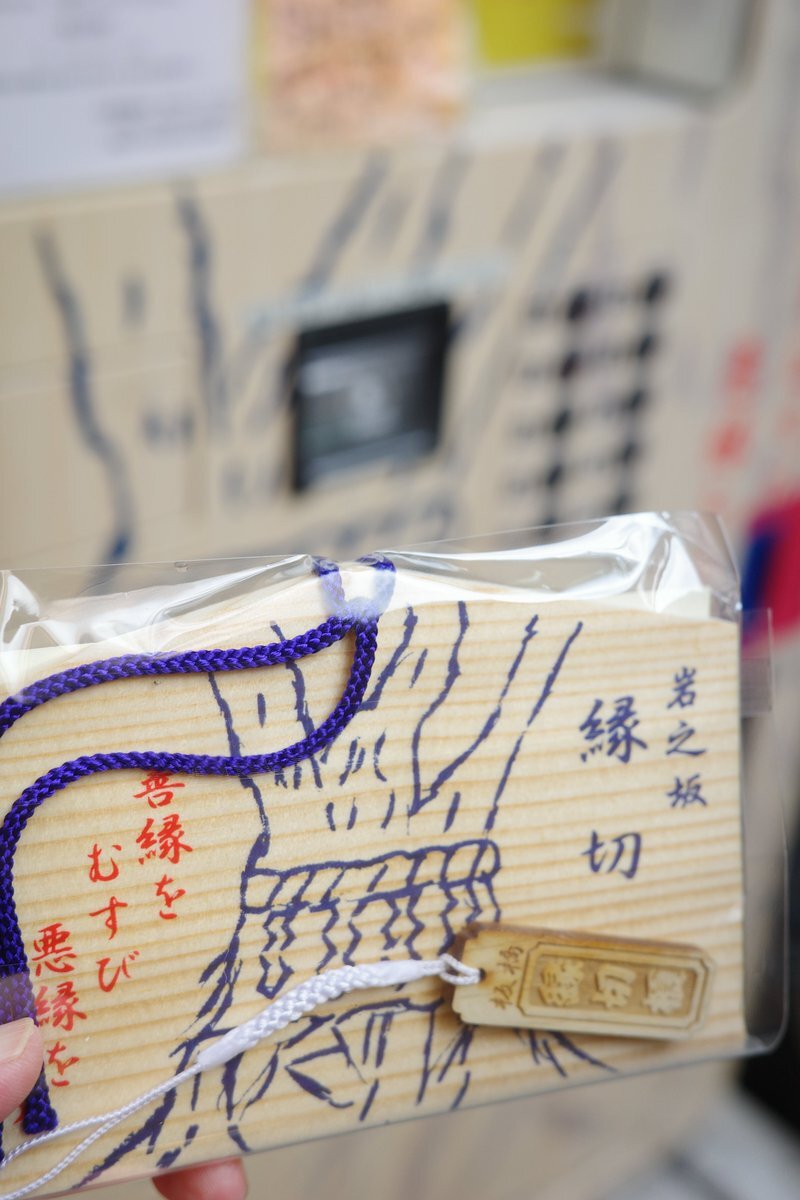 岩之坂
縁切
善縁を
むすび
悪縁を
板橋
縁切榎